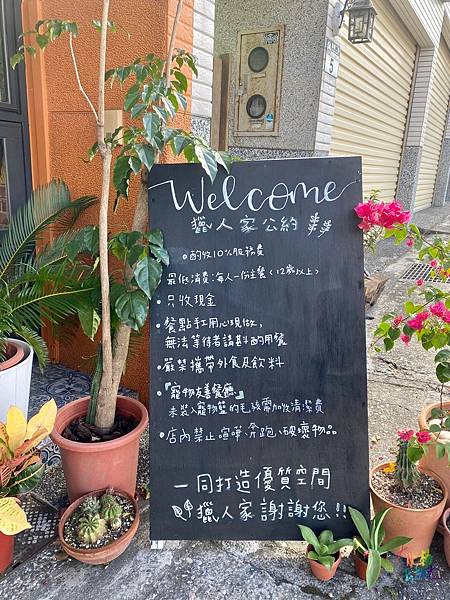 Welcome
獵人家公約
• 酌收10%服務費
最低消費:每人一份主餐(12歲以上)
• 只收現金
• 餐點手工用心現做,
無法等待者請斟酌用餐
• 嚴禁攜帶外食及飲料
• 『寵物友善餐廳』
未裝入寵物籃的毛孩需加收清潔費
• 店內禁止喧嘩、奔跑、破壞物品
一同打造優質空間
獵人家謝謝您!!
5